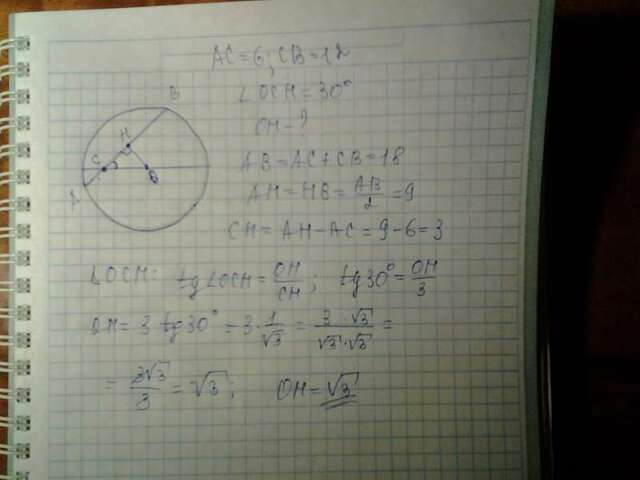 AC=6; CB=12
∠OCH=30°
OH-?
AB=AC+CB=18
AH=HB=AB/2=9
CH=AH-AC=9-6=3
B
H
C
O
A
∠OCH: tg∠OCH=OH/CH; tg30°=OH/3
OH=3 tg30°=3·1/√3=3·√3/√3·√3=
=3√3/3=√3; OH=√3